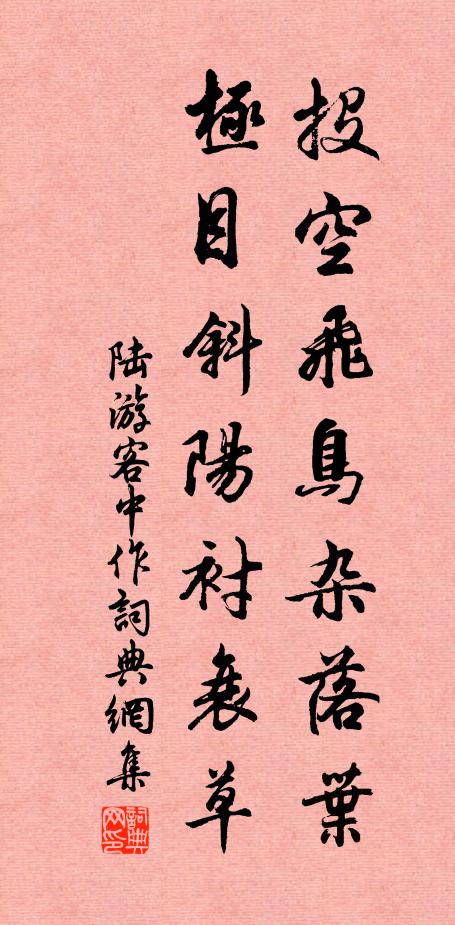 投空飛鳥杂落葉
極目斜陽衬衰草
陆游客中作詞典網集
詞典网印